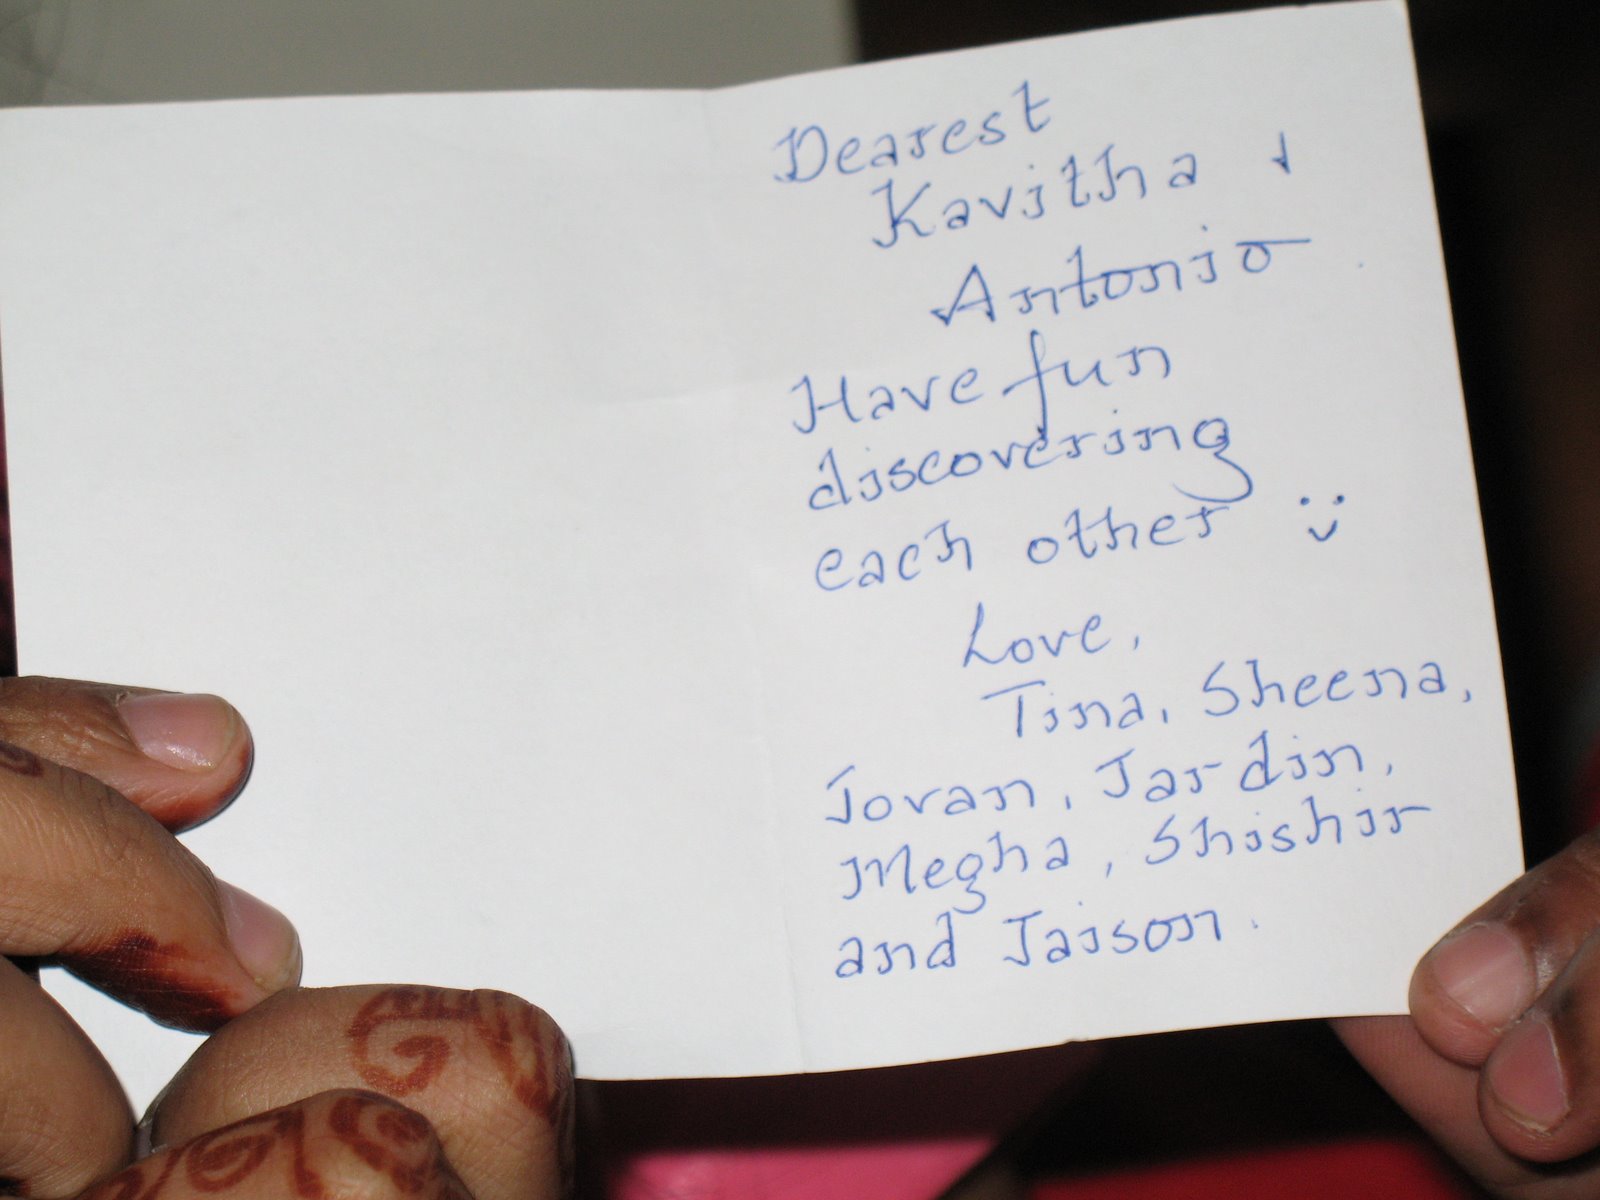 Dearest
Kavitha &
Antonio
Have fun
discovering
each other :)
Love,
Tina, Sheena,
Jovan, Jardin,
Megha, Shishir
and Jaison.